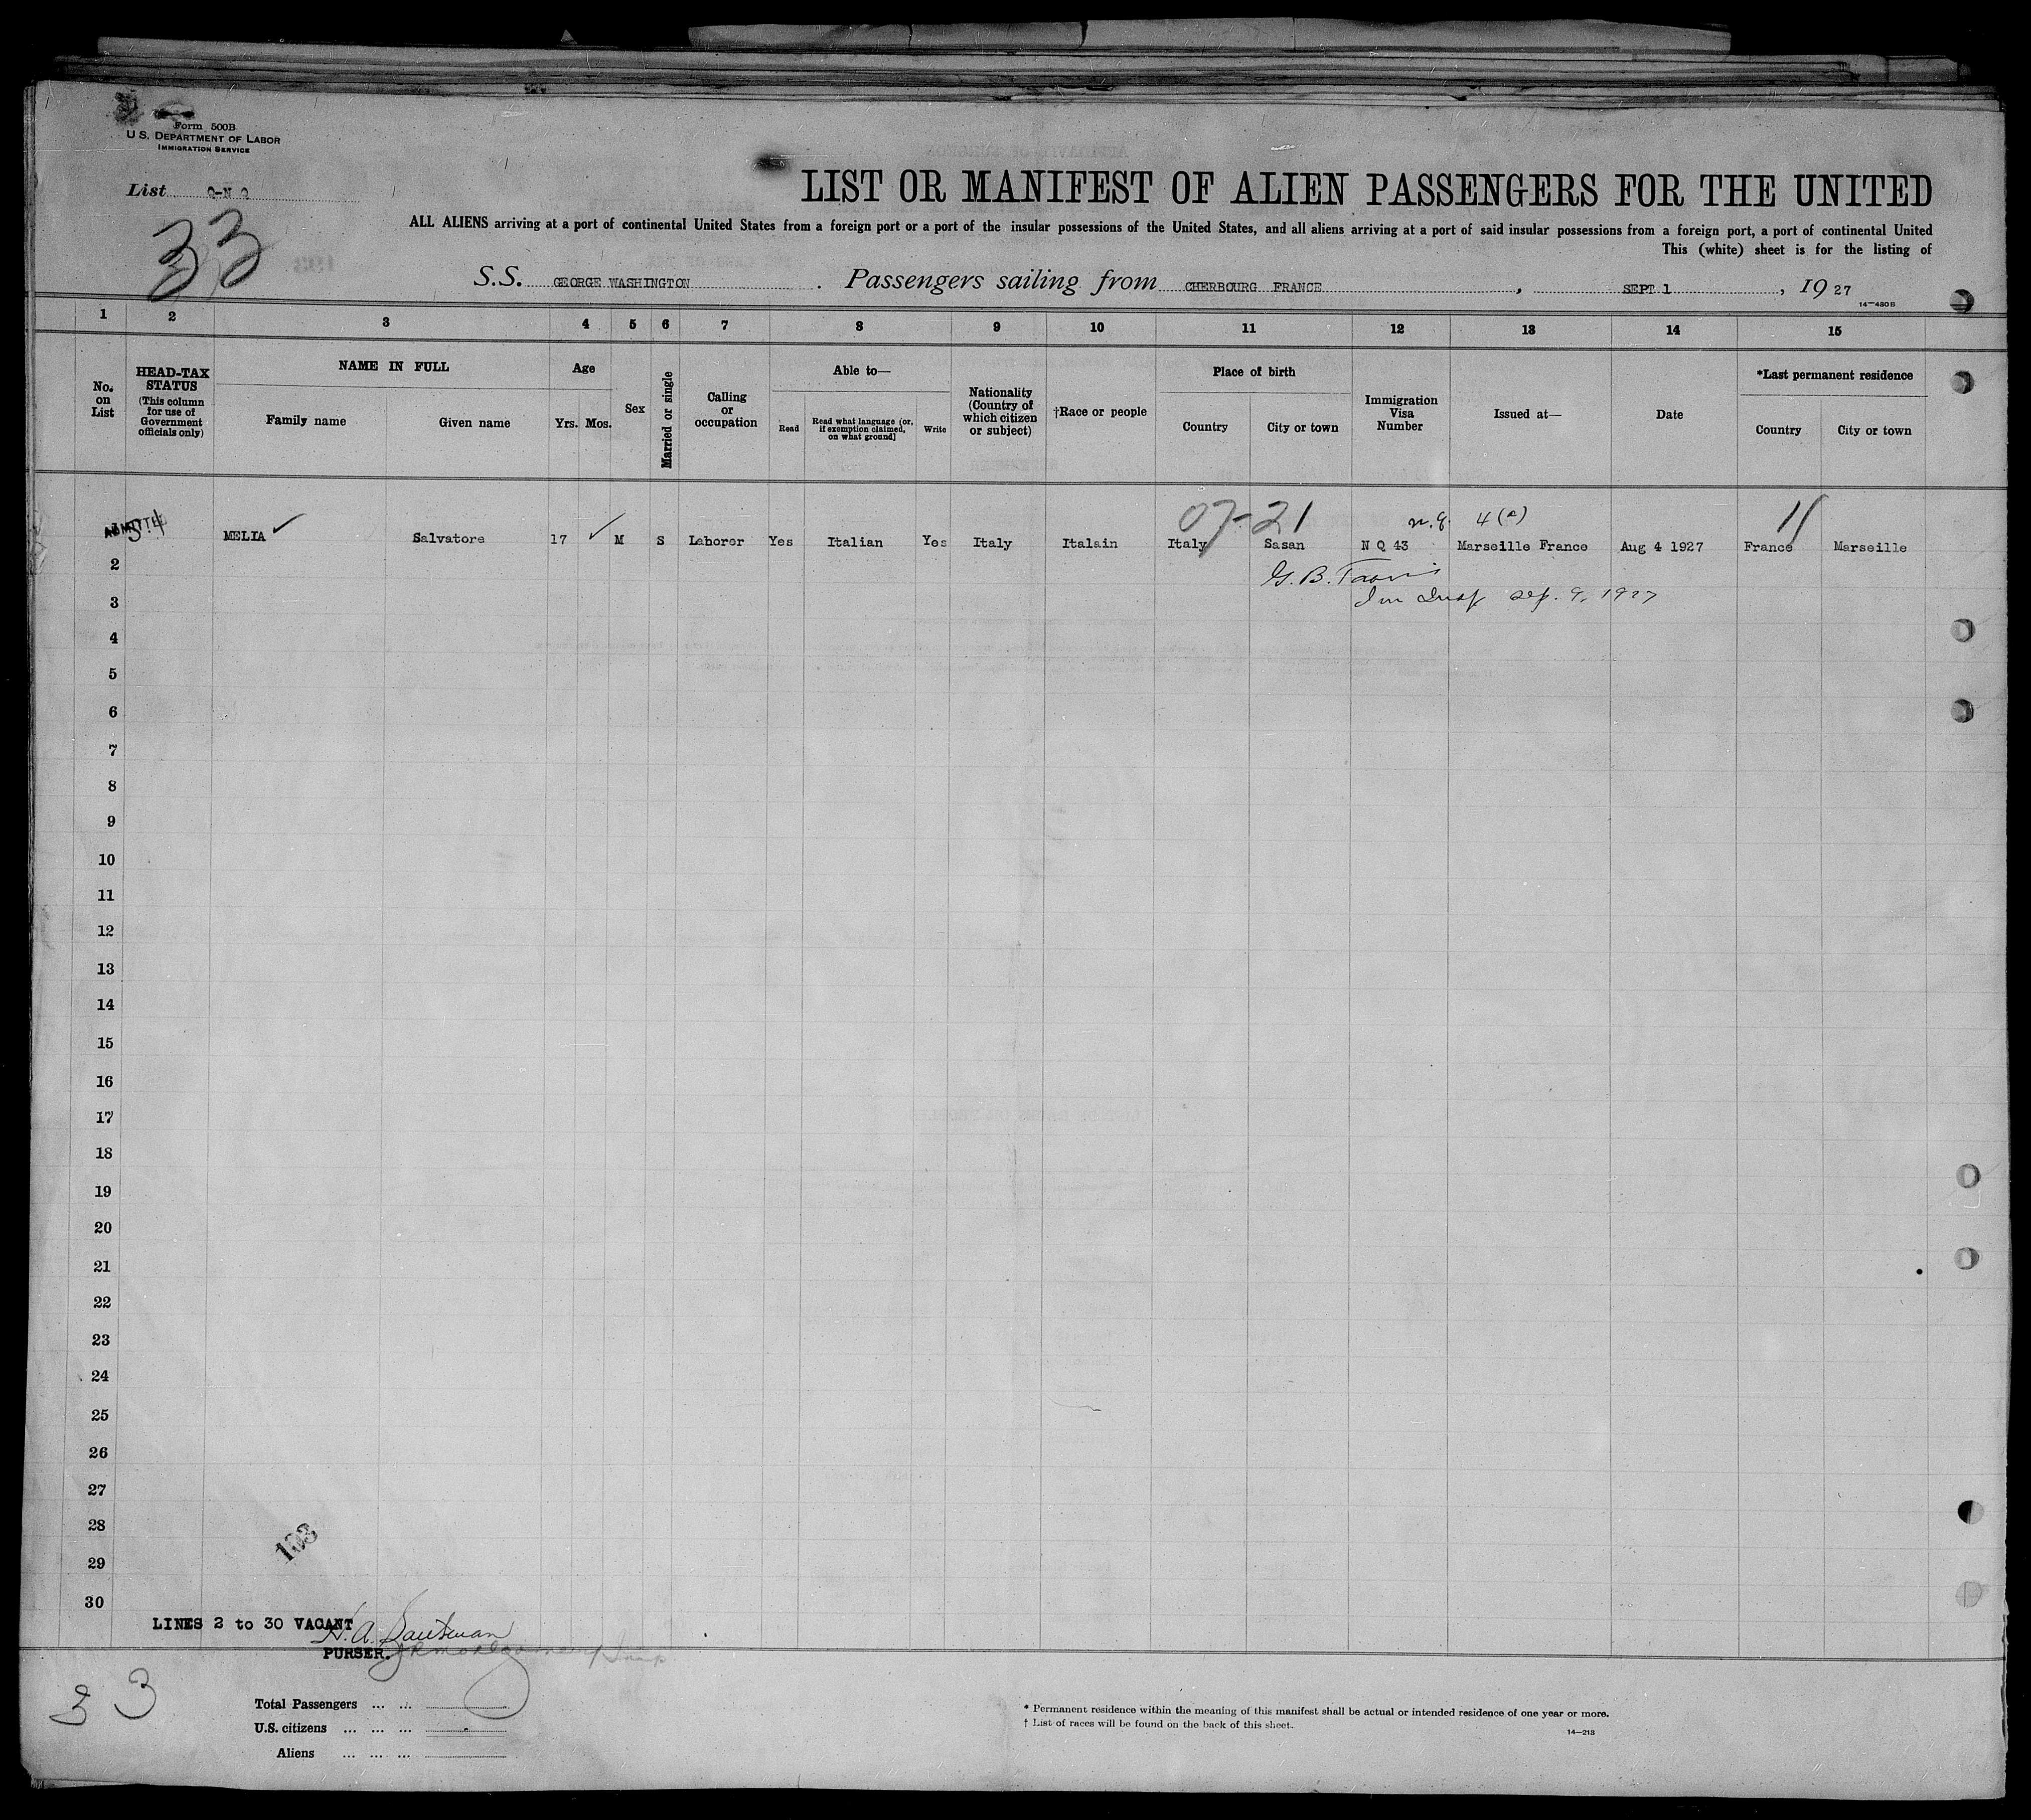 Form 500B
U. S. DEPARTMENT OF LABOR
IMMIGRATION SERVICE
List Q-N Q
33
LIST OR MANIFEST OF ALIEN PASSENGERS FOR THE UNITED
ALL ALIENS arriving at a port of continental United States from a foreign port or a port of the insular possessions of the United States, and all aliens arriving at a port of said insular possessions from a foreign port, a port of continental United
This (white) sheet is for the listing of
S.S. GEORGE WASHINGTON. Passengers sailing from CHERBOURG FRANCE, SEPT 1, 1927
14—480B
1 2 3 4 5 6 7 8 9 10 11 12 13 14 15
No. on List
HEAD-TAX STATUS (This column for use of Government officials only)
NAME IN FULL
Family name
Given name
Age
Yrs. Mos.
Sex
Married or single
Calling or occupation
Able to—
Read
Read what language (or, if exemption claimed, on what ground)
Write
Nationality (Country of which citizen or subject)
†Race or people
Place of birth
Country
City or town
Immigration Visa Number
Issued at—
Date
*Last permanent residence
Country
City or town
07-21 n.q. 4(e) 11
ADMITTED MELIA ✓ Salvatore 17 ✓ M S Laborer Yes Italian Yes Italy Italain Italy Sasan N Q 43 Marseille France Aug 4 1927 France Marseille
2
G. B.
3
Im Insp Sep. 9, 1927
4
5
6
7
8
9
10
11
12
13
14
15
16
17
18
19
20
21
22
23
24
25
26
27
28
103
29
30
LINES 2 to 30 VACANT
H. A.
PURSER.
33
Total Passengers ... ...
U.S. citizens ... ... ...
Aliens ... ... ...
* Permanent residence within the meaning of this manifest shall be actual or intended residence of one year or more.
† List of races will be found on the back of this sheet.
14—213